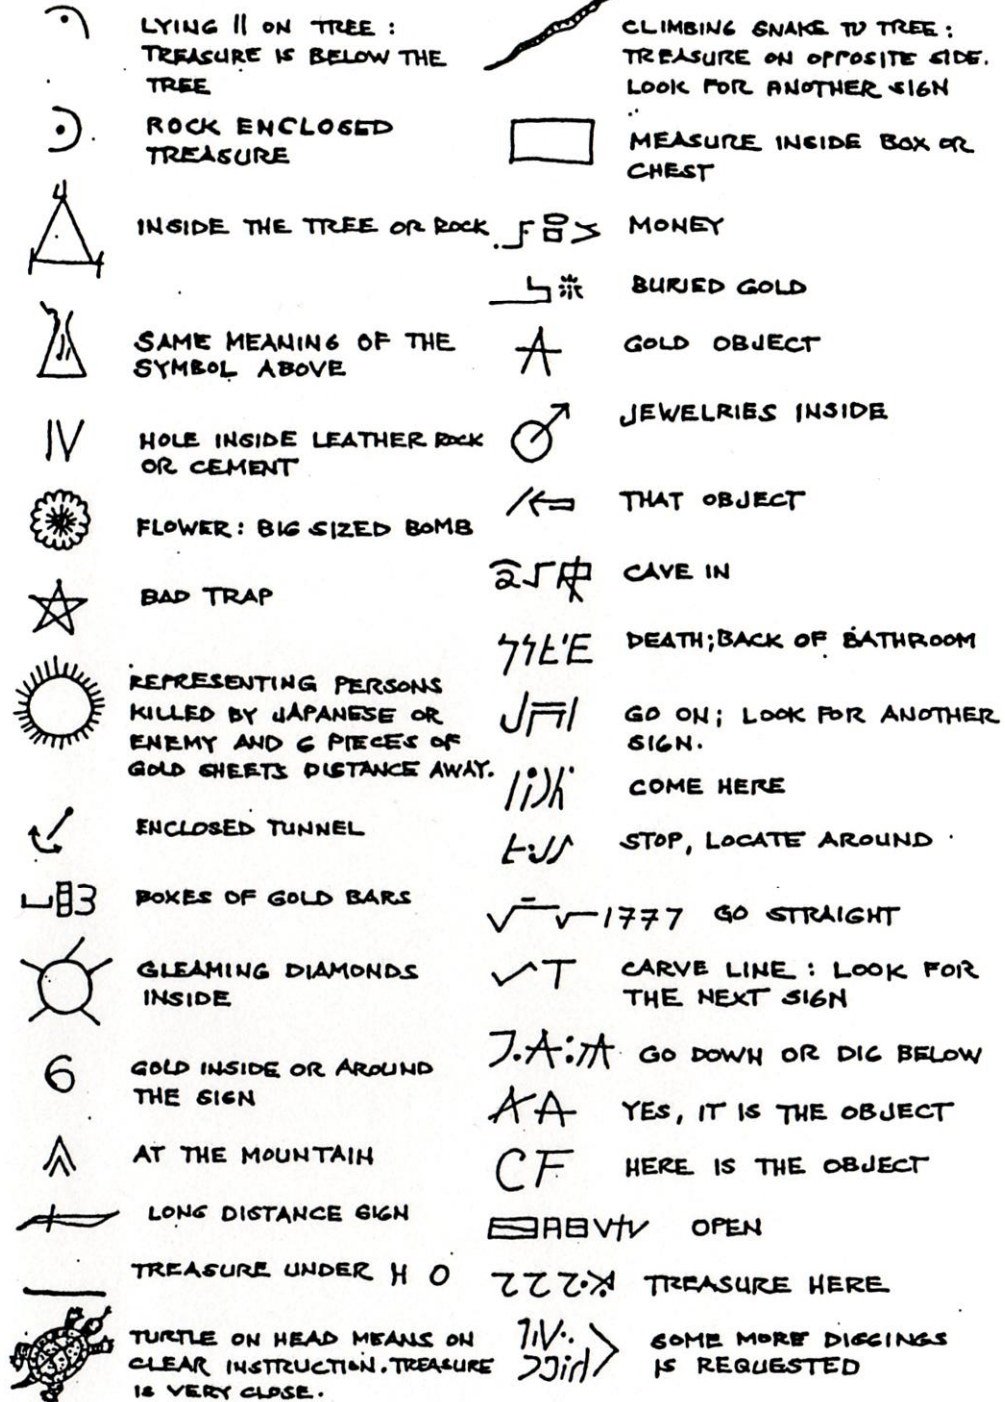 LYING II ON TREE :
TREASURE IS BELOW THE
TREE
ROCK ENCLOSED
TREASURE
INSIDE THE TREE OR ROCK
SAME MEANING OF THE
SYMBOL ABOVE
IV
HOLE INSIDE LEATHER ROCK
OR CEMENT
FLOWER: BIG SIZED BOMB
BAD TRAP
REPRESENTING PERSONS
KILLED BY JAPANESE OR
ENEMY AND 6 PIECES OF
GOLD SHEETS DISTANCE AWAY.
ENCLOSED TUNNEL
BOXES OF GOLD BARS
GLEAMING DIAMONDS
INSIDE
6
GOLD INSIDE OR AROUND
THE SIGN
AT THE MOUNTAIN
LONG DISTANCE SIGN
TREASURE UNDER H O
TURTLE ON HEAD MEANS ON
CLEAR INSTRUCTION. TREASURE
IS VERY CLOSE.
CLIMBING SNAKE TO TREE:
TREASURE ON OPPOSITE SIDE.
LOOK FOR ANOTHER SIGN
MEASURE INSIDE BOX OR
CHEST
MONEY
BURIED GOLD
GOLD OBJECT
JEWELRIES INSIDE
THAT OBJECT
CAVE IN
DEATH; BACK OF BATHROOM
GO ON; LOOK FOR ANOTHER
SIGN.
COME HERE
STOP, LOCATE AROUND
1777 GO STRAIGHT
CARVE LINE : LOOK FOR
THE NEXT SIGN
GO DOWN OR DIG BELOW
AA YES, IT IS THE OBJECT
CF HERE IS THE OBJECT
OPEN
TREASURE HERE
SOME MORE DIGGINGS
IS REQUESTED